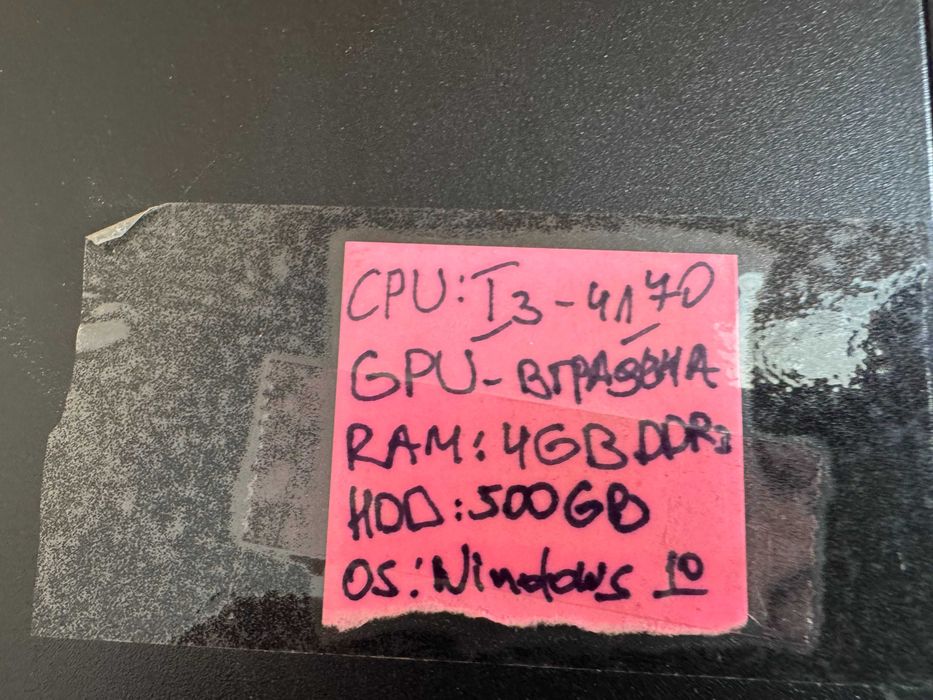 CPU: I3-4170
GPU-ВГРАДЕНА
RAM: 4GB DDR3
HDD: 500GB
OS: Windows 10